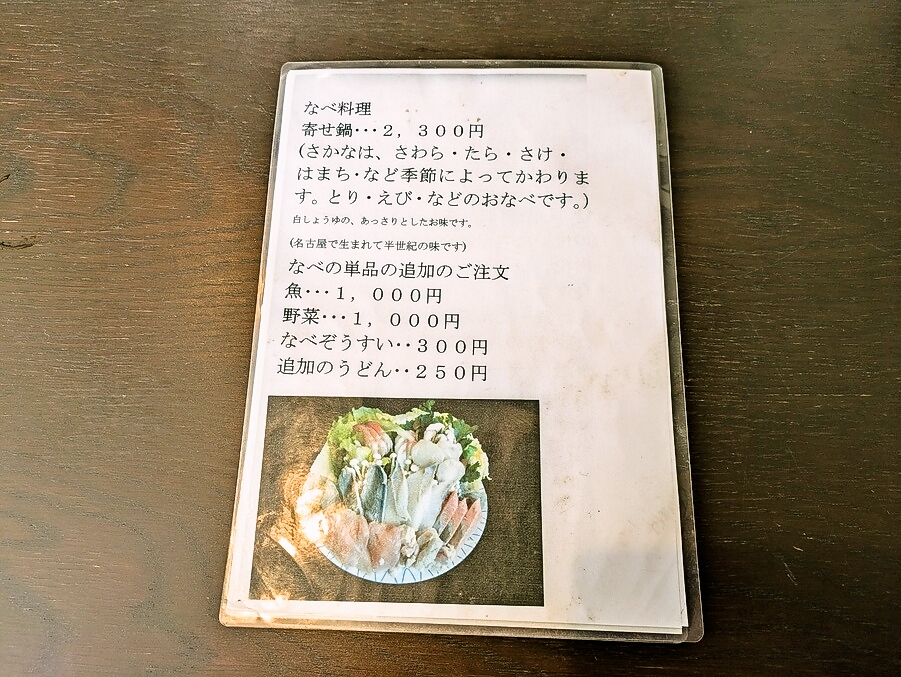 なべ料理
寄せ鍋･･･２，３００円
(さかなは、さわら・たら・さけ・
はまち・など季節によってかわりま
す。とり・えび・などのおなべです。)
白しょうゆの、あっさりとしたお味です。
(名古屋で生まれて半世紀の味です)
なべの単品の追加のご注文
魚･･･１，０００円
野菜･･･１，０００円
なべぞうすい･･３００円
追加のうどん･･２５０円